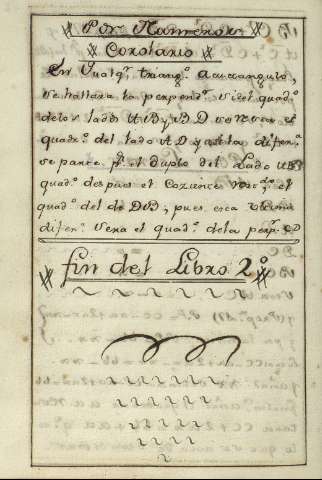 Por Numeros
Corolario
En qualqr. triango. acutangulo,
se hallara la perpendr. si del quado.
de los lados AB y BD se resta el
quadro. del lado AD, y esta difera.
se parte pr. el duplo del Lado
quado. despues el
quado. del de DB; pues esta ultima
difera. sera el quado. de la perpr. CD
fin del Libro 2o.